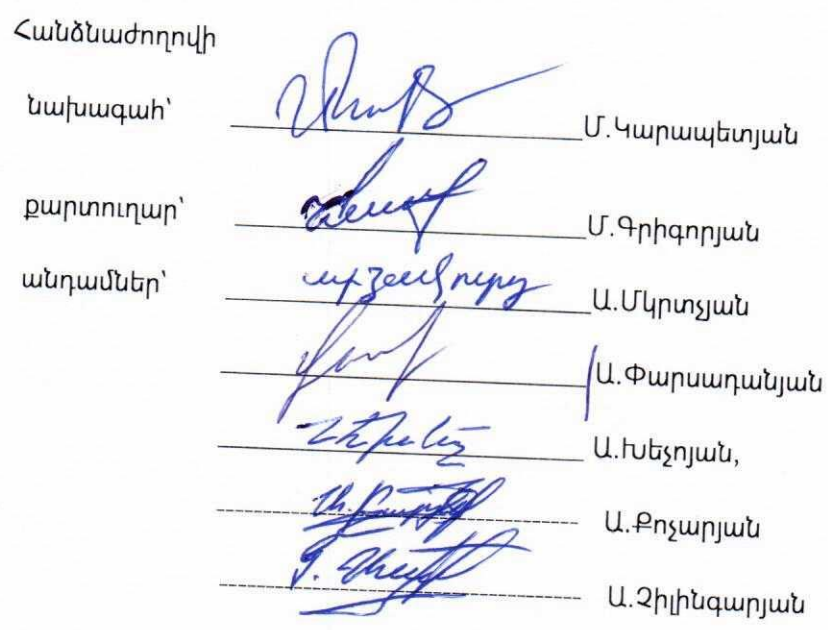 Հանձնաժողովի
նախագահ՝ Մ.Կարապետյան
քարտուղար՝ Մ.Գրիգորյան
անդամներ՝ Ա.Մկրտչյան
Ա.Փարսադանյան
Ա.Խեչոյան,
Ա.Քոչարյան
Ա.Չիլինգարյան